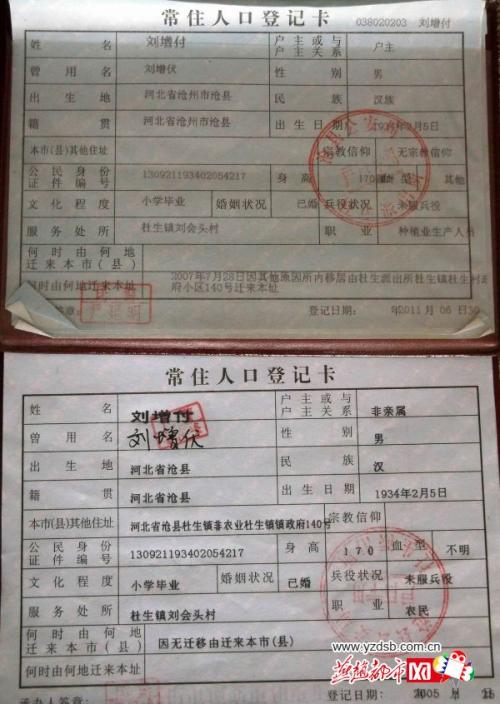 常住人口登记卡
038020203 刘增付
姓 名 刘增付 户主或与户主关系 户主
曾用名 刘增伏 性别 男
出生地 河北省沧州市沧县 民族 汉族
籍贯 河北省沧州市沧县 出生日期 1934年2月5日
本市(县)其他住址 宗教信仰 无宗教信仰
公民身份证件编号 130921193402054217 身高 170 血型 其他
文化程度 小学毕业 婚姻状况 已婚 兵役状况 未服兵役
服务处所 杜生镇刘会头村 职业 种植业生产人员
何时由何地迁来本市(县)
何时由何地迁来本址 2007年7月28日因其他原因所内移居由杜生派出所杜生镇杜生村政
府小区140号迁来本址
登记日期: 年2011月06日30
常住人口登记卡
姓 名 刘增付 户主或与户主关系 非亲属
曾用名 刘增伏 性别 男
出生地 河北省沧县 民族 汉
籍贯 河北省沧县 出生日期 1934年2月5日
本市(县)其他住址 河北省沧县杜生镇非农业杜生镇镇政府140号 宗教信仰
公民身份证件编号 130921193402054217 身高 170 血型 不明
文化程度 小学毕业 婚姻状况 已婚 兵役状况 未服兵役
服务处所 杜生镇刘会头村 职业 农民
何时由何地迁来本市(县) 因无迁移由迁来本市(县)
何时由何地迁来本址
承办人签章: 登记日期: 2005
www.yzdsb.com.cn
燕赵都市网